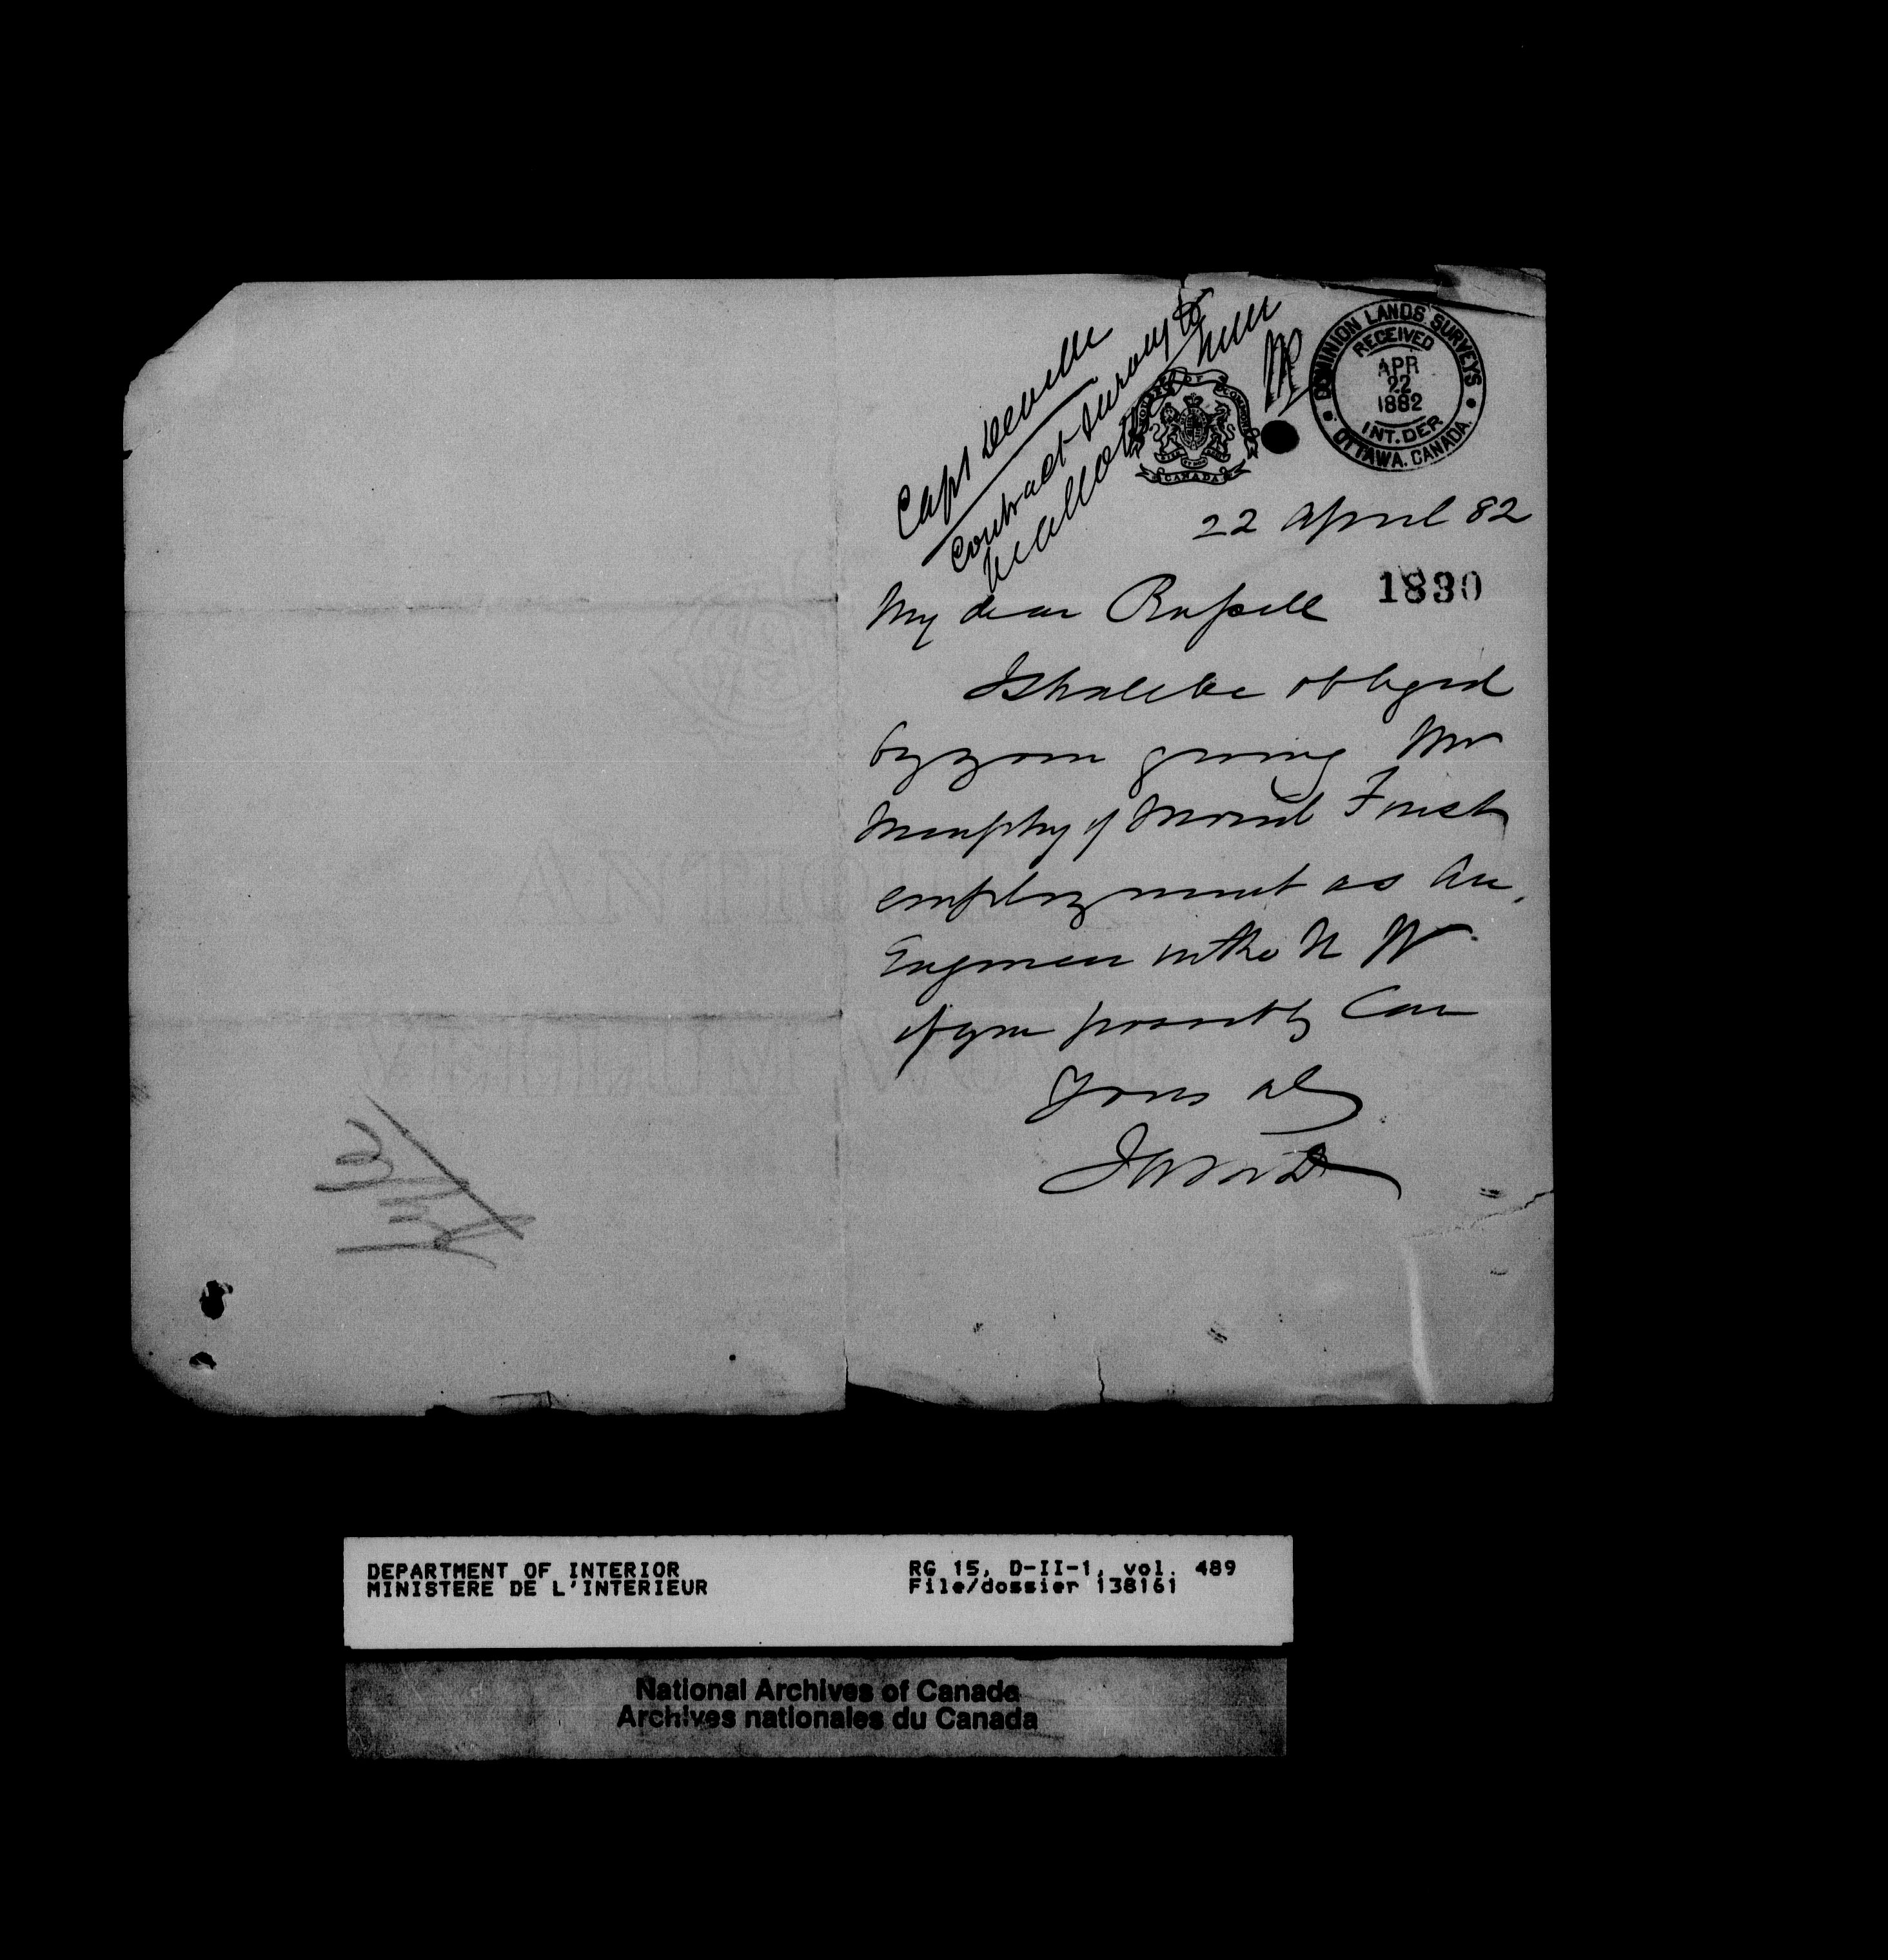 Capt Deville
Contract survey to
be allotted him
HOUSE OF COMMONS
CANADA
DOMINION LANDS SURVEYS
RECEIVED
APR
22
1882
INT. DEP.
OTTAWA. CANADA.
22 April 82
1830
My dear Russell
I shall be obliged
by you giving Mr
Murphy of Mount Forest
employment as an
Engineer in the N W
if you possibly can
Yours aly
ANTIQUE
VELLUM WOVE
DEPARTMENT OF INTERIOR
MINISTERE DE L'INTERIEUR
RG 15, D-II-1, vol. 489
File/dossier 138161
National Archives of Canada
Archives nationales du Canada